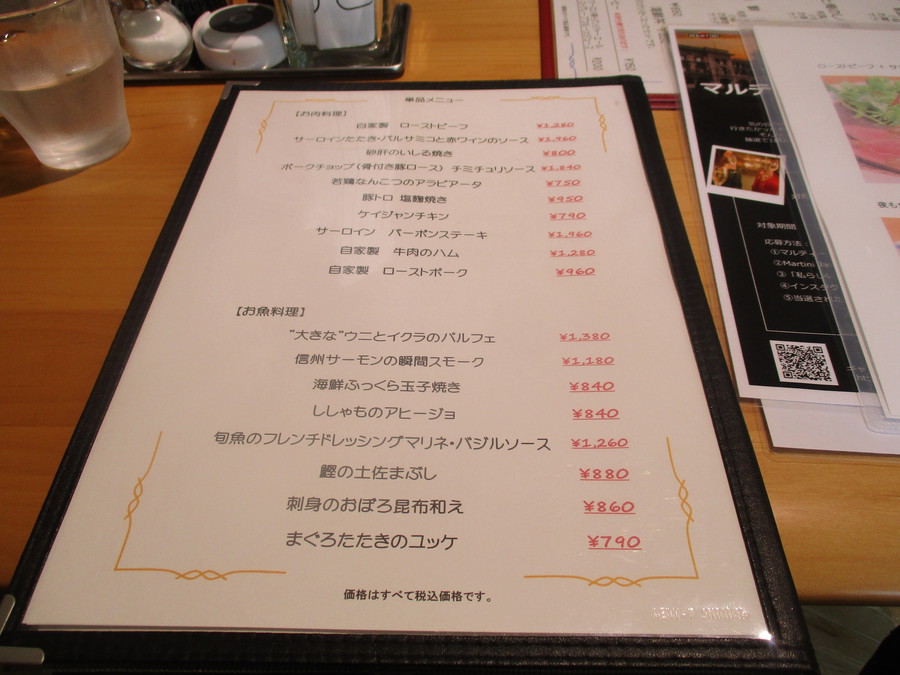 単品メニュー
【お肉料理】
自家製 ローストビーフ ¥1,280
サーロインたたき・バルサミコと赤ワインのソース ¥1,960
砂肝のいしる焼き ¥800
ポークチョップ(骨付き豚ロース) チミチュリソース ¥1,840
若鶏なんこつのアラビアータ ¥750
豚トロ 塩麹焼き ¥950
ケイジャンチキン ¥790
サーロイン バーボンステーキ ¥1,960
自家製 牛肉のハム ¥1,280
自家製 ローストポーク ¥960
【お魚料理】
"大きな"ウニとイクラのパルフェ ¥1,380
信州サーモンの瞬間スモーク ¥1,180
海鮮ふっくら玉子焼き ¥840
ししゃものアヒージョ ¥840
旬魚のフレンチドレッシングマリネ・バジルソース ¥1,260
鰹の土佐まぶし ¥880
刺身のおぼろ昆布和え ¥860
まぐろたたきのユッケ ¥790
価格はすべて税込価格です。
マルテ
対象期間
応募方法:
①マルティ
②Martini
③「私らし
④インスタグ
⑤当選され
ローストビーフ
夜も